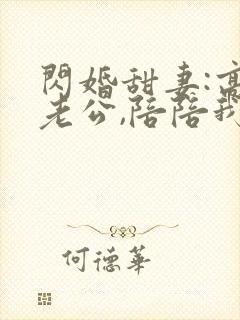 閃婚甜妻:高
老公,陪陪我
何德華